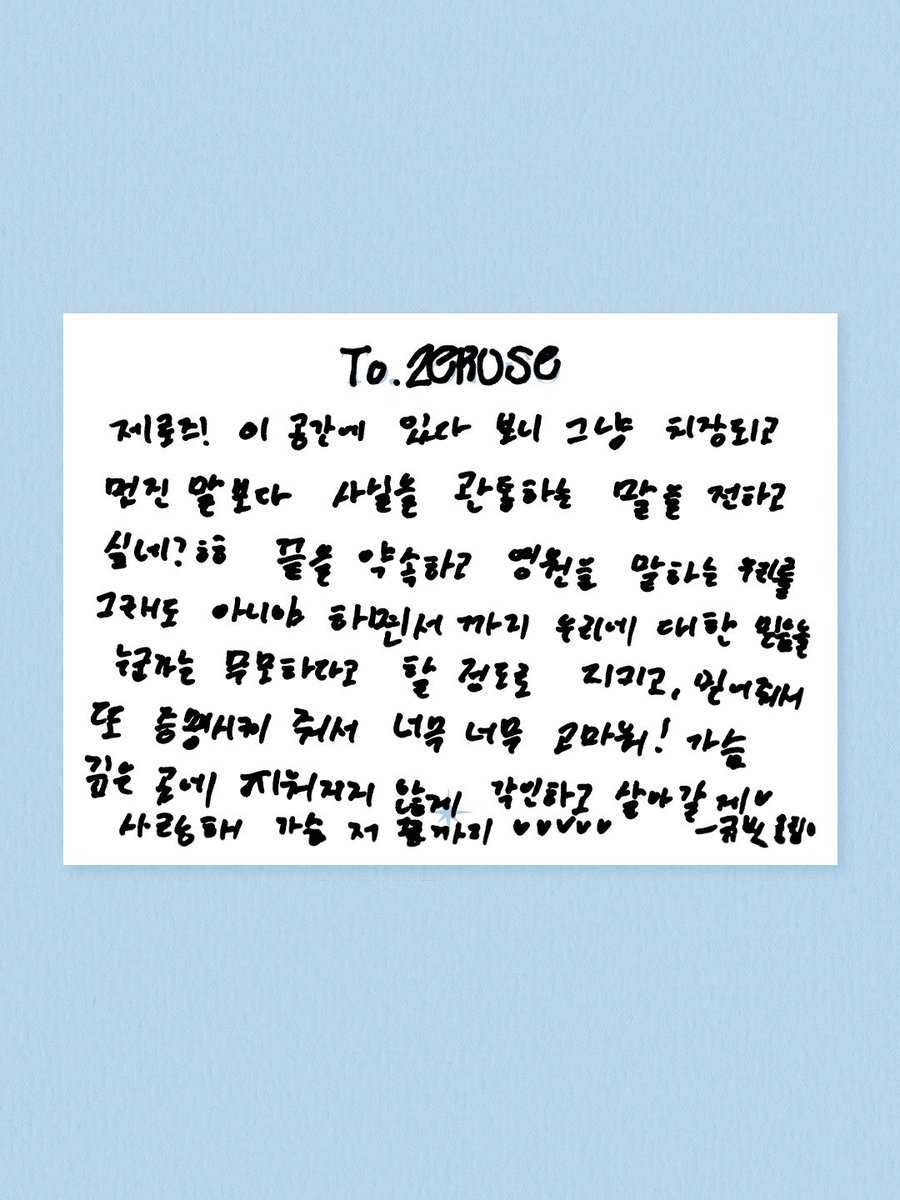 To. ZEROSE
제로즈! 이 공간에 있다 보니 그냥 치장되고
멋진 말보다 사실을 관통하는 말을 전하고
싶네?ㅎㅎ 끝을 약속하고 영원을 말하는 우리를
그래도 아니야 하면서 까지 우리에 대한 믿음을
누군가는 무모하다고 할 정도로 지키고, 믿어줘서
또 증명시켜 줘서 너무 너무 고마워! 가슴
깊은 곳에 지워지지 않게 각인하고 살아갈게♡
사랑해 가슴 저 끝까지 ♡♡♡♡♡ -규빗